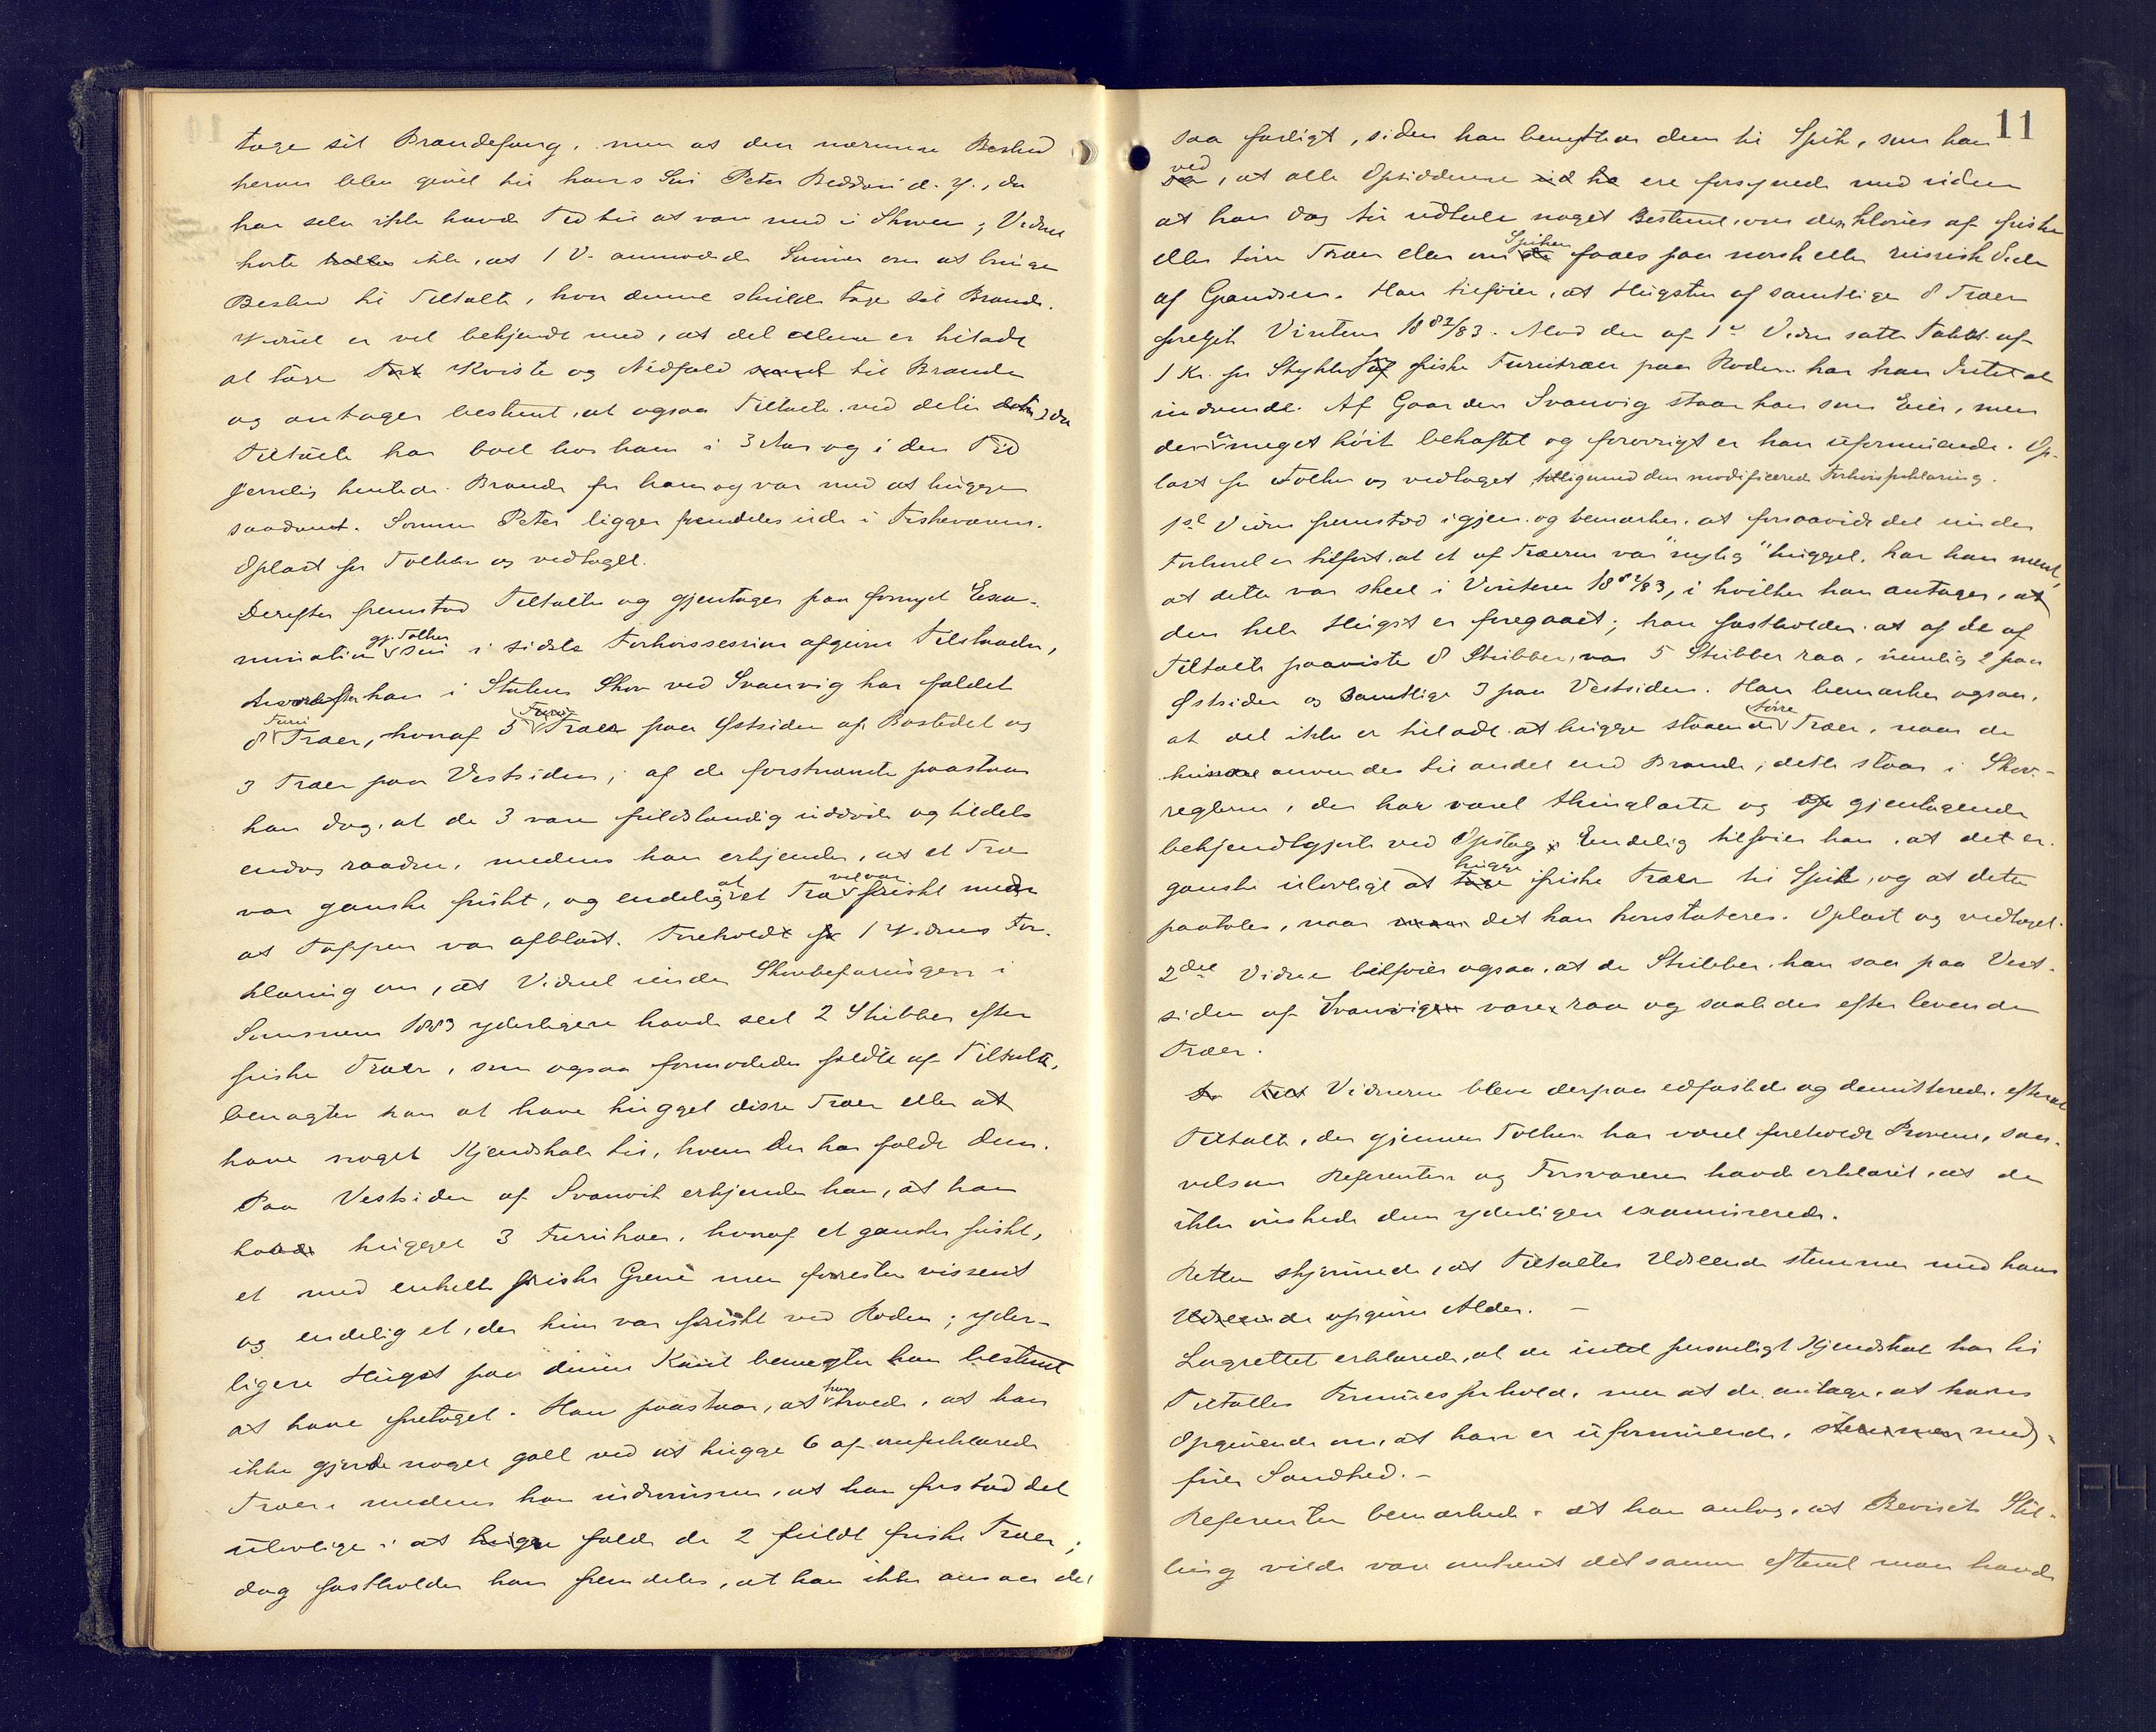 tage sit Brandefang, men at den nærmere Besked
herom blev givet til hans Søn Peter Beddari d. y., da
han selv ikke havde Tid til at være med i Skoven; Vidnet
hørte ikke, at 1 V. anmodede Sønnen om at bringe
Besked til Tiltalte, hvor denne skulde tage sit Brande.
Vidnet er vel bekjendt med, at det alene er tilladt
at tage Kviste og Nedfald til Brande
og antager bestemt, at ogsaa Tiltalte ved dette, da
Tiltalte har boet hos ham i 3 Aar og i den Tid
jevnlig hentede Brande for ham og var med at hugge
saadant. Sønnen Peter ligger fremdeles ude i Fiskeværen.
Oplæst for Tolken og vedtaget.
Derefter fremstod Tiltalte og gjentager paa fornyet Exa-
mination gj. Tolken sin i sidste Forhørssession afgivne Tilstaaelse,
hvorefter han i Statens Skov ved Svanvig har fældet
8 Furu Træer, hvoraf 5 Træer paa Østsiden af Bostedet og
3 Træer paa Vestsiden; af de førstnævnte paastaar
han dog, at de 3 vare fuldstændig uddøde og tildels
endog raadne, medens han erkjender, at et Træ
var ganske friskt, og endelig at et Træ vel var friskt men
at Toppen var afblæst. Foreholdt 1 Vidnes For-
klaring om, at Vidnet under Skovbefaringen i
Sommeren 1883 yderligere havde seet 2 Stubber efter
friske Træer, som ogsaa formodedes fældte af Tiltalte,
benægter han at have hugget disse Træer eller at
have noget Kjendskab til, hvem der har fældt dem.
Paa Vestsiden af Svanvik erkjender han, at han
havde hugget 3 Furutræer, hvoraf et ganske friskt,
et med enkelte friske Grene men forresten vissent
og endelig et, der kun var friskt ved Roden; yder-
ligere Hugst paa denne Kant benegter han bestemt
at have foretaget. Han paastaar, at han troede, at han
ikke gjorde noget galt ved at hugge 6 af omforklarede
Træer, medens han indrømmer, at han forstod det
ulovlige i at hugge fælde de 2 fuldt friske Træer;
dog fastholder han fremdeles, at han ikke ansaa det
11
saa farligt, siden han benyttede dem til Spik, som han
ved, at alle Opsidderne ere forsynede med uden
at han dog tør udtale noget Bestemt, om den kløves af friske
eller tørre Træer eller om Spiken faaes paa norsk eller russisk Side
af Grændsen. Han tilføier, at Hugsten af samtlige 8 Træer
foregik Vinteren 1882/83. Mod den af 1e Vidne satte Takst af
1 Kr. pr Stykke for friske Furutræer paa Roden har han Intet at
indvende. Af Gaarden Svanvig staar han som Eier, men
den er meget høit behæftet og forøvrigt er han uformuende. Op-
læst for Tolken og vedtaget tilligemed den modificerede Forhørsforklaring.
1ste Vidne fremstod igjen og bemærker, at forsaavidt det under
Forhøret er tilført, at et af Træerne var "nylig" hugget, har han ment,
at dette var skeet i Vinteren 1882/83, i hvilken han antager, at
den hele Hugst er foregaaet; han fastholder, at af de af
Tiltalte paaviste 8 Stubber, var 5 Stubber raa, nemlig 2 paa
Østsiden og Samtlige 3 paa Vestsiden. Han bemærker ogsaa,
at det ikke er tilladt at hugge staaende tørre Træer, naar de
anvendes til andet end Brande; dette staar i Skov-
reglerne, der har været thinglæste og gjentagende
bekjendtgjorte ved Opslag. Endelig tilføier han, at det er
ganske ulovligt at hugge friske Træer til Spik, og at dette
paatales, naar det kan konstateres. Oplæst og vedtaget.
2det Vidne tilføier ogsaa, at de Stubber, han saa paa Vest-
siden af Svanvig vare raa og saaledes efter levende
Træer.
Vidnerne bleve derpaa edfæstede og demitterede, efterat
Tiltalte, der gjennem Tolken har været foreholdt Provene, saa-
velsom Referenten og Forsvareren havde erklæret, at de
ikke ønskede dem yderligere examinerede.
Retten skjønnede, at Tiltaltes Udseende stemmer med hans
opgivne Alder. –
Lagrettet erklærede, at de intet personligt Kjendskab har til
Tiltaltes Formuesforhold, men at de antage, at hans
Opgivende om, at han er uformuende, med-
fører Sandhed. –
Referenten bemærkede, at han antog, at Bevisets Stil-
ling vilde være omtrent det samme efterat man havde